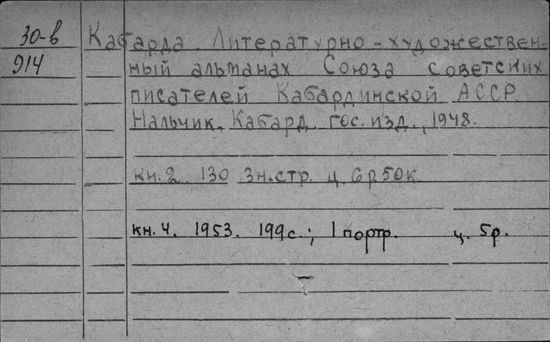 30-в Кабарда. Литературно-художествен-
914 ный альманах Союза советских
писателей Кабардинской АССР.
Нальчик, Кабард. гос. изд., 1948.
кн. 2. 130 Зн. стр. ц. 6р50к.
кн. 4. 1953. 199с.; 1 портр. ц. 5р.